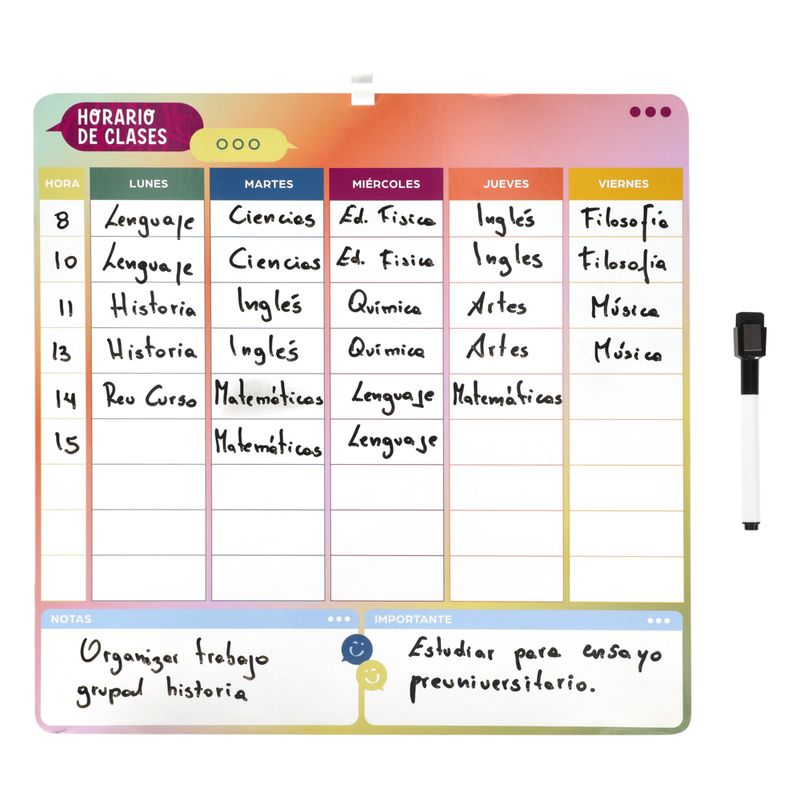 HORARIO
DE CLASES
HORA LUNES MARTES MIÉRCOLES JUEVES VIERNES
8 Lenguaje Ciencias Ed. Fisica Inglés Filosofía
10 Lenguaje Ciencias Ed. Fisica Ingles Filosofía
11 Historia Inglés Química Artes Música
13 Historia Inglés Química Artes Música
14 Reu Curso Matemáticas Lenguaje Matemáticas
15 Matemáticas Lenguaje
NOTAS IMPORTANTE
Organizar trabajo
grupal historia
Estudiar para ensayo
preuniversitario.